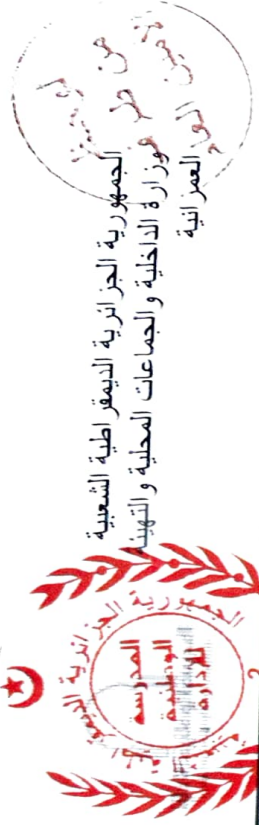 الجمهورية الجزائرية الديمقراطية الشعبية
وزارة الداخلية والجماعات المحلية والتهيئة
العمرانية
الجمهورية الجزائرية
المدرسة
الوطنية
للإدارة